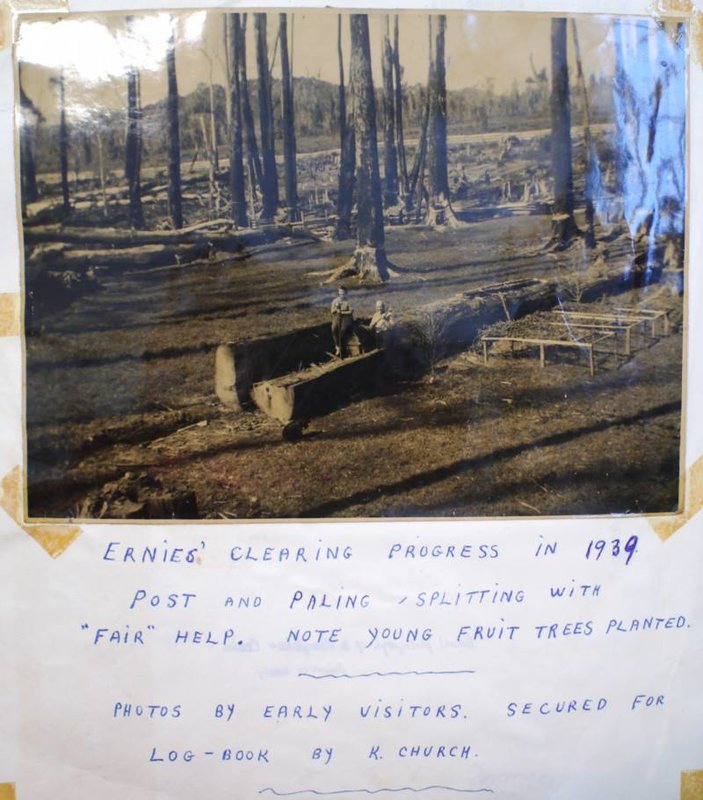 ERNIES' CLEARING PROGRESS IN 1939.
POST AND PALING, SPLITTING WITH
"FAIR" HELP. NOTE YOUNG FRUIT TREES PLANTED.
PHOTOS BY EARLY VISITORS. SECURED FOR
LOG-BOOK BY K. CHURCH.